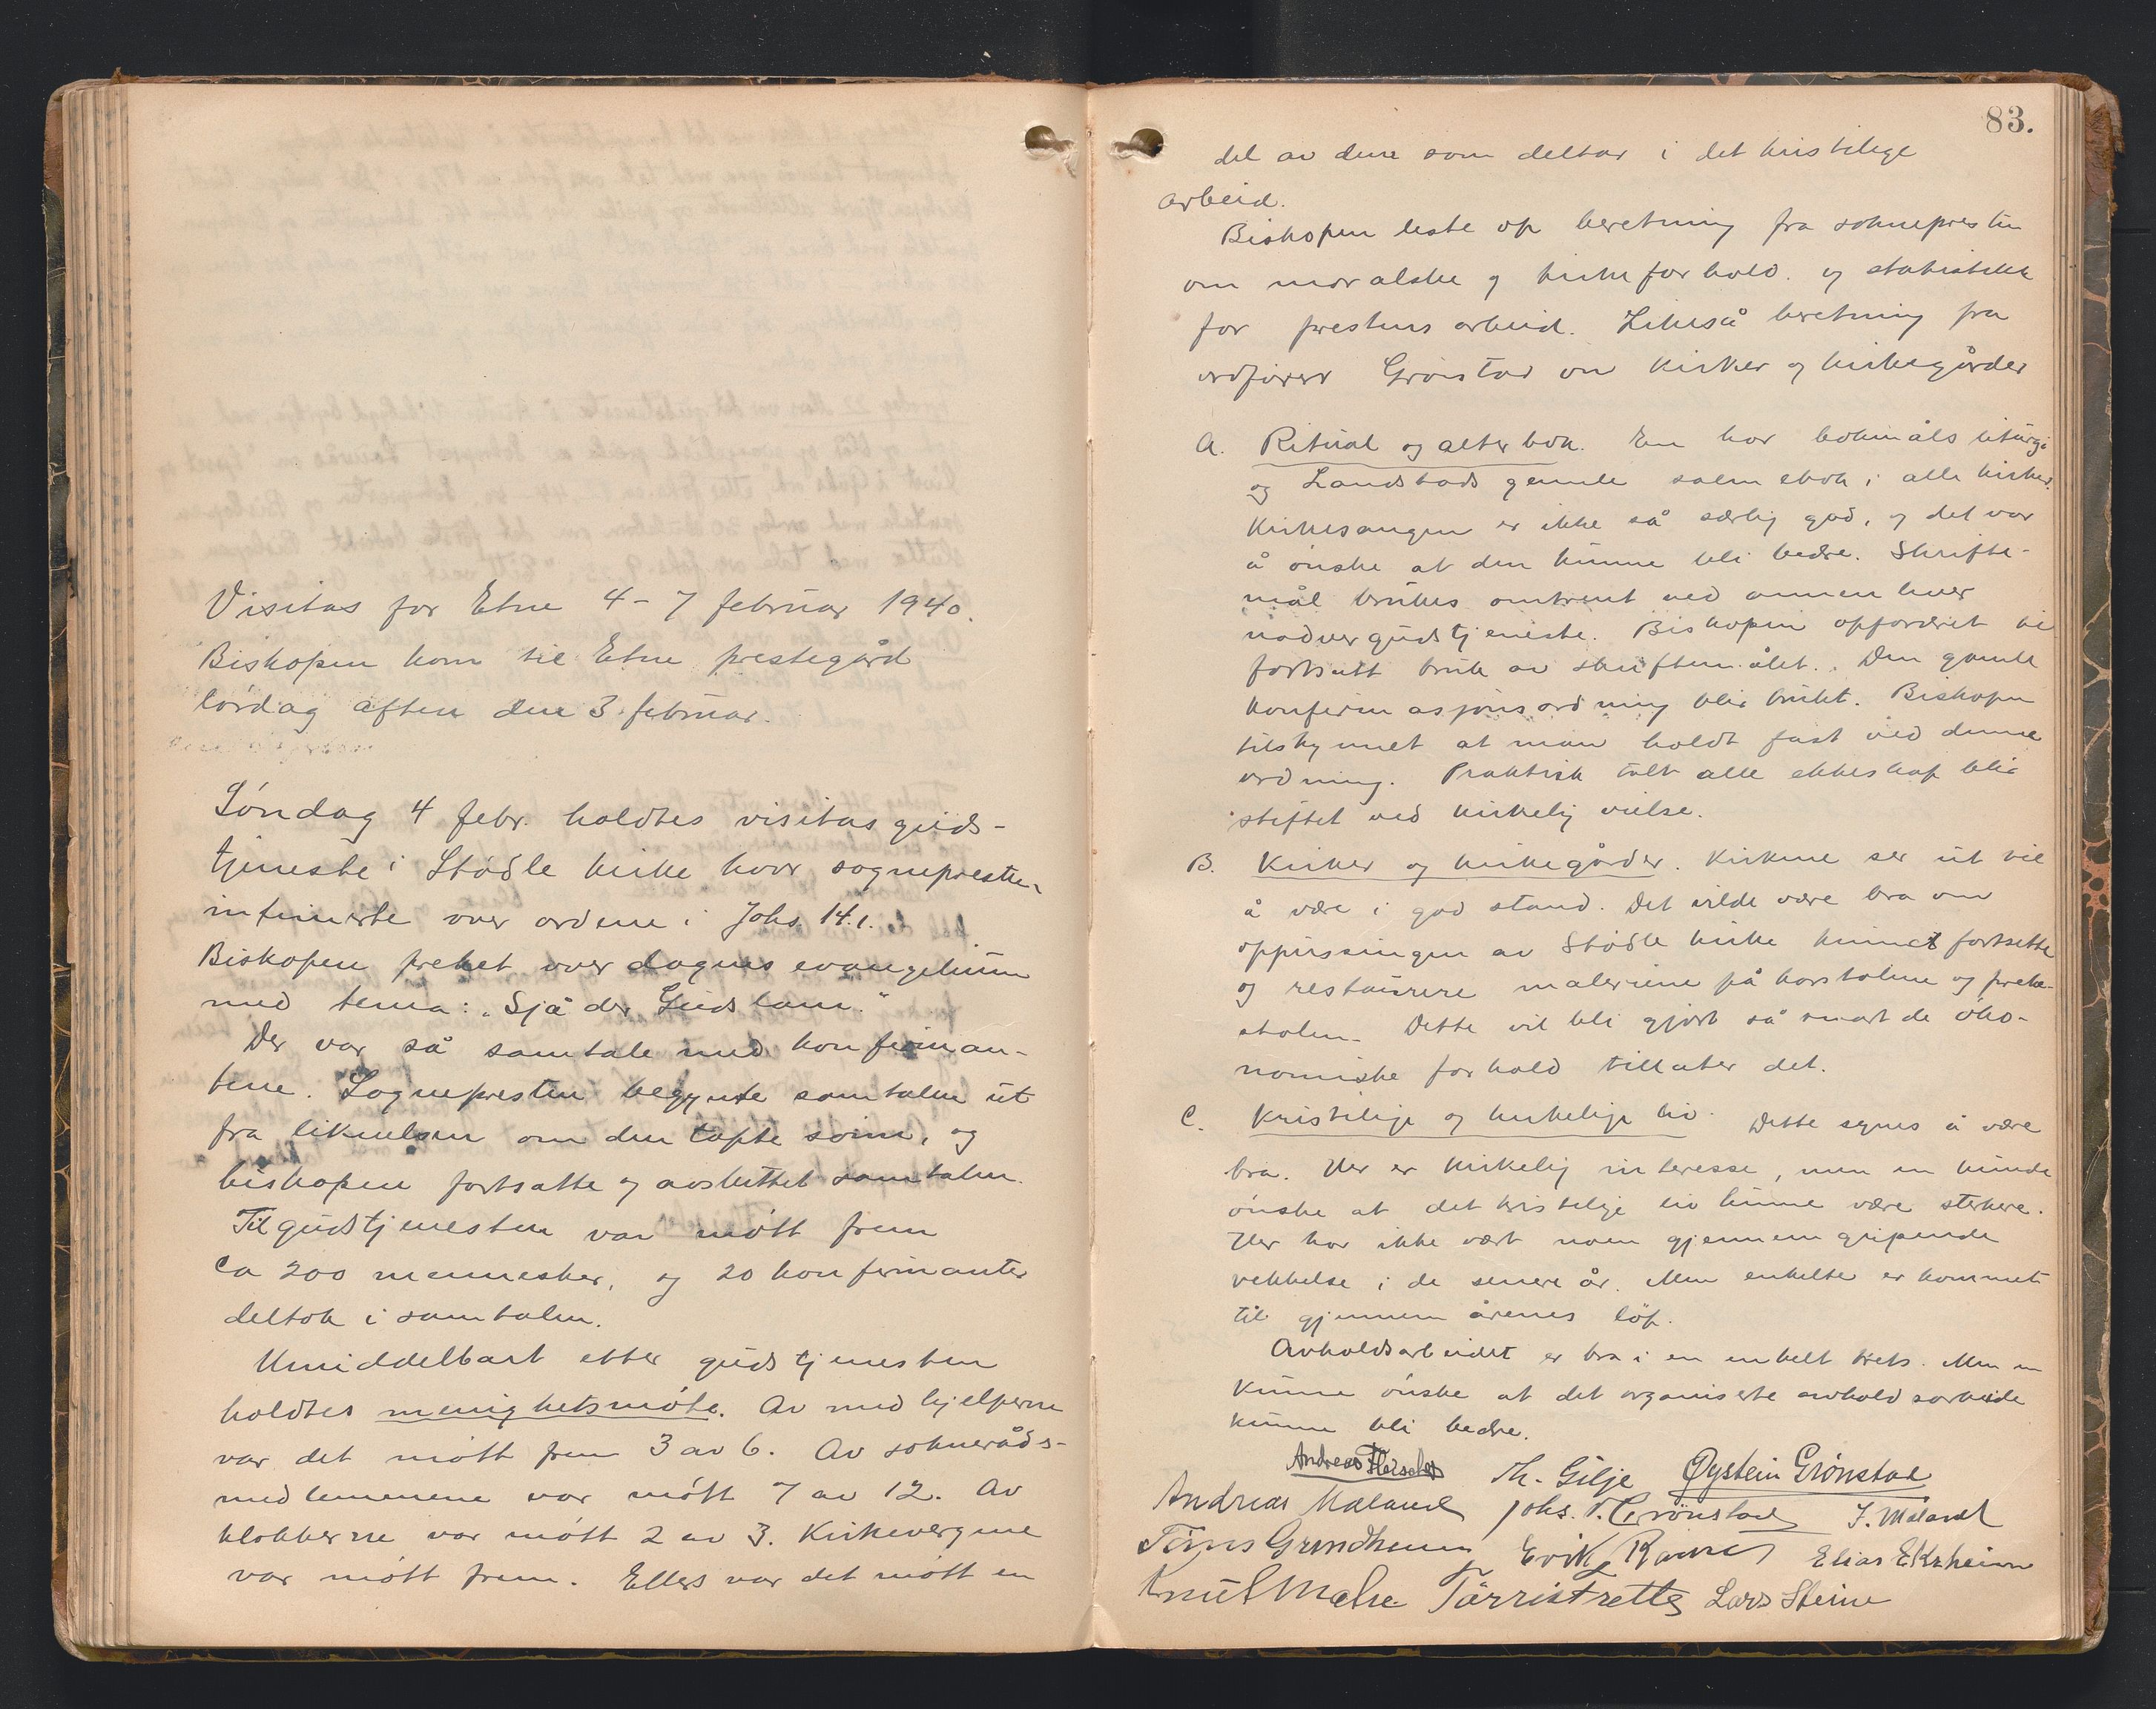 Visitas for Etne 4-7 februar 1940.
Biskopen kom til Etne prestegård
lördag aften den 3 februar.
Söndag 4 febr. holdtes visitasguds-
tjeneste i Stödle kirke hvor sognepresten
intimerte over ordene i Johs. 14.1.
Biskopen preket over dagens evangelium
med tema: "Sjå der Guds lam."
Der var så samtale med konfirman-
tene. Sognepresten begynte samtalen ut
fra liknelsen om den tapte sönn, og
biskopen fortsatte og avsluttet samtalen.
Til gudstjenesten var mött frem
ca 200 mennesker, og 20 konfirmanter
deltok i samtalen.
Umiddelbart etter gudstjenesten
holdtes menighetsmöte. Av medhjelperne
var det mött frem 3 av 6. Av sokneråds-
medlemmene var mött 7 av 12. Av
klokkerne var mött 2 av 3. Kirkevergene
var mött frem. Ellers var det mött en
83.
del av dem som deltar i det kristelige
arbeid.
Biskopen leste op beretning fra soknepresten
om moralske og kirkeforhold og statistikk
for prestens arbeid. Likeså beretning fra
ordförer Grönstad om kirker og kirkegårder
A. Ritual og alterbok. En har bokmåls liturgi
og Landstads gamle salmebok i alle kirker.
Kirkesangen er ikke så særlig god, og det var
å önske at den kunne bli bedre. Skrifte-
mål brukes omtrent ved annen hver
nadvergudstjeneste. Biskopen opfordret til
fortsatt bruk av skriftemålet. Den gamle
konfirmasjonsordning blir brukt. Biskopen
tilskyndet at man holdt fast ved denne
ordning. Praktisk talt alle ekteskap blir
stiftet ved kirkelig vielse.
B. Kirker og kirkegårder. Kirkene ser ut til
å være i god stand. Det vilde være bra om
oppussingen av Stödle kirke kunne fortsette
og restaurere maleriene på korstolene og preke-
stolen. Dette vil bli gjort så snart de öko-
nomiske forhold tillater det.
C. Kristelige og kirkelige liv. Dette synes å være
bra. Her er kirkelig interesse, men en kunde
önske at det kristelige liv kunne være sterkere.
Her har ikke vært noen gjennemgripende
vekkelse i de senere år. Men enkelte er kommet
til gjennem årenes löp.
Avholdsarbeidet er bra i en enkelt krets. Men en
kunne önske at det organiserte avholdsarbeide
kunne bli bedre.
Andreas Fleischer Th. Gilje Øystein Grønstad
Andreas Mæland Johs. T. Grönstad J. Mæland
Töns Grindheim Erik Ramse Elias Ekrheim
Knut Mæhe Törris Lars Steine